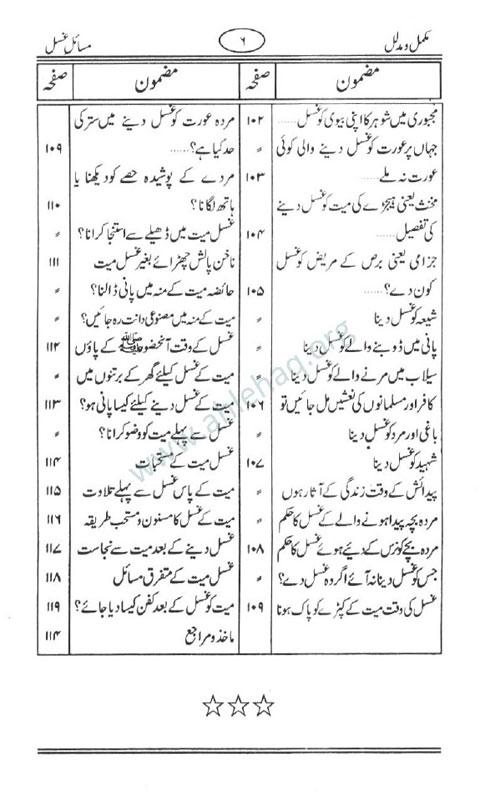 مکمل و مدلل
۶
مسائل غسل
مضمون
صفحہ
مجبوری میں شوہر کا اپنی بیوی کو غسل......
۱۰۲
جہاں پر عورت کو غسل دینے والی کوئی
〃
عورت نہ ملے
۱۰۳
مخنث یعنی ہیجڑے کی میت کو غسل دینے
کی تفصیل
۱۰۴
جزامی یعنی برص کے مریض کو غسل
کون دے؟......
۱۰۵
شیعہ کو غسل دینا
〃
پانی میں ڈوبنے والے کو غسل دینا
〃
سیلاب میں مرنے والے کو غسل دینا
〃
کافر اور مسلمانوں کی نعشیں مل جائیں تو
۱۰۶
باغی اور مرد کو غسل دینا
〃
شہید کو غسل دینا
۱۰۷
پیدائش کے وقت زندگی کے آثار ہوں
〃
مردہ بچہ پیدا ہونے والے کے غسل کا حکم
〃
مردہ بچے کو نرس کے دیئے ہوئے غسل کا حکم
۱۰۸
جس کو غسل دینا نہ آئے اگر وہ غسل دے؟
〃
غسل کی وقت میت کے کپڑے کو پاک ہونا
۱۰۹
مضمون
صفحہ
مردہ عورت کو غسل دینے میں ستر کی
حد کیا ہے؟......
۱۰۹
مردے کے پوشیدہ حصے کو دیکھنا یا
ہاتھ لگانا؟
۱۱۰
غسل میت میں ڈھیلے سے استنجا کرانا؟
〃
ناخن پالش چھڑائے بغیر غسل میت
۱۱۱
حائضہ میت کے منہ میں پانی ڈالنا؟
〃
میت کے منہ میں مصنوعی دانت رہ جائیں؟
〃
غسل کے وقت آنحضور ﷺ کے پاؤں
۱۱۲
میت کے غسل کیلئے گھر کے برتنوں میں
〃
میت کے غسل دینے کیلئے کیسا پانی ہو؟
۱۱۳
غسل سے پہلے میت کو وضو کرانا؟
〃
غسل میت کے مستحبات
۱۱۴
میت کے پاس غسل سے پہلے تلاوت
۱۱۵
میت کے غسل کا مسنون و مستحب طریقہ
۱۱۶
غسل دینے کے بعد میت سے نجاست
۱۱۷
غسل میت کے متفرق مسائل
۱۱۸
میت کو غسل کے بعد کفن کیسا دیا جائے؟
۱۱۹
ماخذ و مراجع
۱۱۴
www.ahlehaq.org